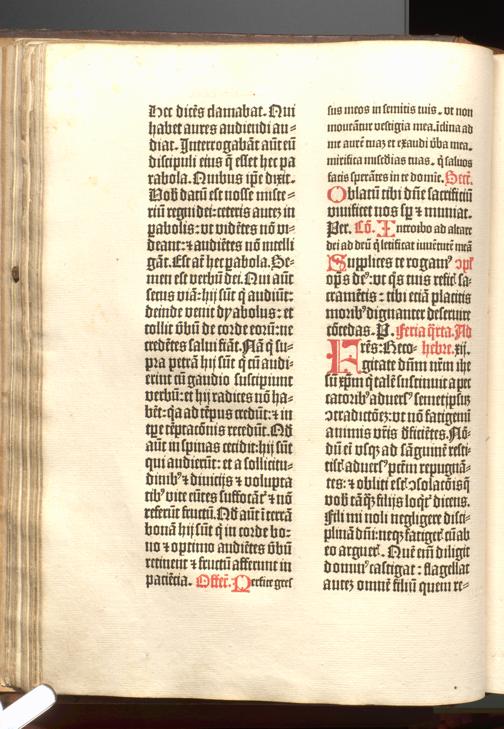 Hec dicēs clamabat. Qui
habet aures audiendi au⸗
diat. Interrogabāt aūt eū
discipuli eius q̄ esset hec pa
rabola. Quibus ip̄e dixit.
Vob̄ datū est nosse miste⸗
riū regni dei: ceteris autez in
ꝑabolis: vt vidētes nō vi⸗
deant: ⁊ audiētes nō intelli
gāt. Est aūt hec ꝑabola. Se⸗
men est verbū dei. Qui aūt
secus viā: hij sūt q̄ audiūt:
deinde venit dyabolus: et
tollit v̄bū de corde eorū: ne
credētes salui fiāt. Nā q̄ su⸗
pra petrā hij sūt q̄ cū audi⸗
erint cū gaudio suscipiunt
verbū: et hij radices nō ha⸗
bēt: q̄a ad tēpus credūt: ⁊ in
tꝑe tēptacōnis recedūt. Qd̄
aūt in spinas cecidit: hij sūt
qui audierūt: et a sollicitu⸗
dinibꝰ ⁊ diuicijs ⁊ volupta
tibꝰ vite eūtes suffocāt᷑ ⁊ nō
referunt fructū. Qd̄ aūt ī terrā
bonā hij sūt q̄ in corde bo⸗
no ⁊ optimo audiētes v̄bū
retinent ⁊ fructū afferunt in
paciētia. Offer̄. Perfice gres
sus meos in semitis tuis. vt non
moueātur vestigia mea. īclina au
rem tuaz et exaudi v̄ba mea.
mirifica mīsc̄dias tuas. q̄ saluos
facis sperātes in te domīe. Secr̄.
Oblatū tibi dn̄e sacrificiū
viuificet nos sp̄ ⁊ muniat.
Per. Cō. Introibo ad altare
dei ad deū q̄ letificat iuuētutē meā
Supplices te rogamꝰ ꝯpl̄
op̄s deꝰ: vt q̄s tuis reficis sa⸗
cramētis: tibi etiā placitis
moribꝰ dignanter deseruire
cōcedas. P. Feria q̄rta. Ad
Fr̄es: Reco⸗ hebre. xij.
gitate dn̄m nr̄m ihe
sū xp̄m q̄ talē sustinuit a pec
catoribꝰ aduersꝰ semetipsuz
ꝯtradictōez: vt nō fatigemī
animis vr̄is dficiētes. Nō⸗
dū em̄ vsq̄ ad sāguinē resti⸗
tistꝭ aduersꝰ pctm̄ repugnā⸗
tes: ⁊ obliti estꝭ ꝯsolacōis q̄
vob̄ tāq̄ filijs loqt᷑ dicens.
Fili mi noli negligere disci⸗
plinā dn̄i: neqꝫ fatiget᷑ cū ab
eo arguerꝭ. Quē em̄ diligit
dominꝰ castigat: flagellat
autez omnē filiū quem re⸗